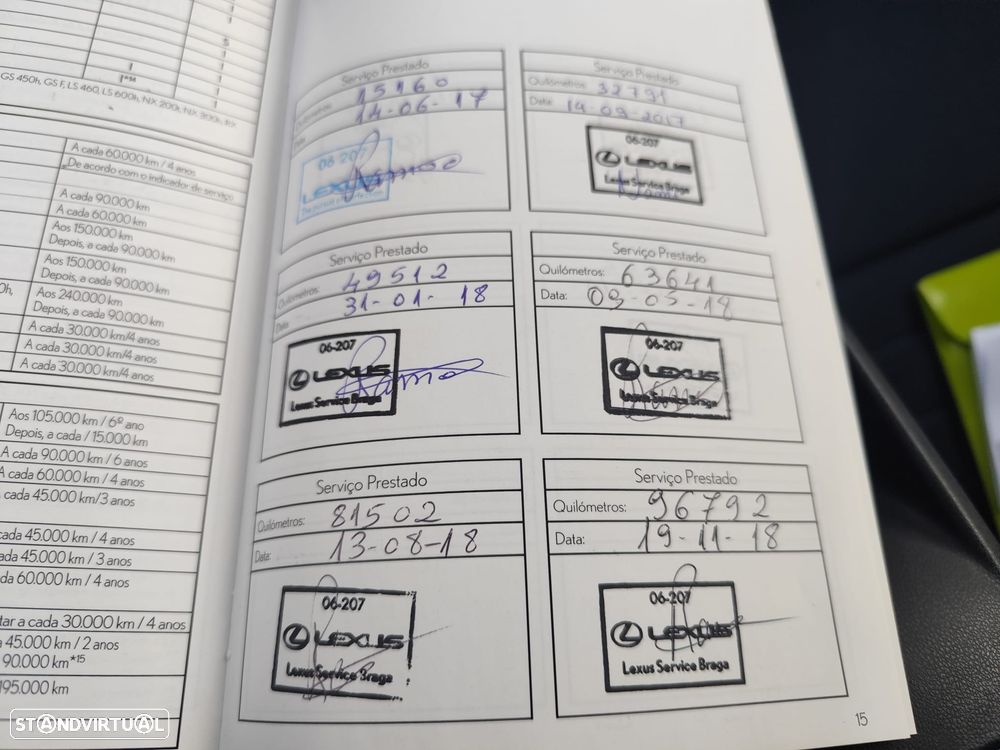 1
5
1
1
1*¹⁴
1
GS 450h, GS F, LS 460, LS 600h, NX 200t, NX 300h, RX
A cada 60.000 km / 4 anos
De acordo com o indicador de serviço
A cada 90.000 km
A cada 60.000 km
Aos 150.000 km
Depois, a cada 90.000 km
Aos 150.000 km
Depois, a cada 90.000 km
0h,
Aos 240.000 km
Depois, a cada 90.000 km
A cada 30.000 km/4 anos
A cada 30.000 km/4 anos
A cada 30.000 km/4 anos
Aos 105.000 km / 6º ano
Depois, a cada / 15.000 km
A cada 90.000 km / 6 anos
A cada 60.000 km / 4 anos
cada 45.000 km/3 anos
cada 45.000 km / 4 anos
cada 45.000 km / 3 anos
da 60.000 km / 4 anos
tar a cada 30.000 km / 4 anos
45.000 km / 2 anos
90.000 km*¹⁵
195.000 km
Serviço Prestado
Quilómetros: 15160
Data: 14-06-17
06-207
LEXUS
Serviço Prestado
Quilómetros: 32791
Data: 14-09-2017
06-207
LEXUS
Lexus Service Braga
Serviço Prestado
Quilómetros: 49512
Data: 31-01-18
06-207
LEXUS
Lexus Service Braga
Serviço Prestado
Quilómetros: 63641
Data: 03-05-18
06-207
LEXUS
Lexus Service Braga
Serviço Prestado
Quilómetros: 81502
Data: 13-08-18
06-207
LEXUS
Lexus Service Braga
Serviço Prestado
Quilómetros: 96792
Data: 19-11-18
06-207
LEXUS
Lexus Service Braga
15
STANDVIRTUAL